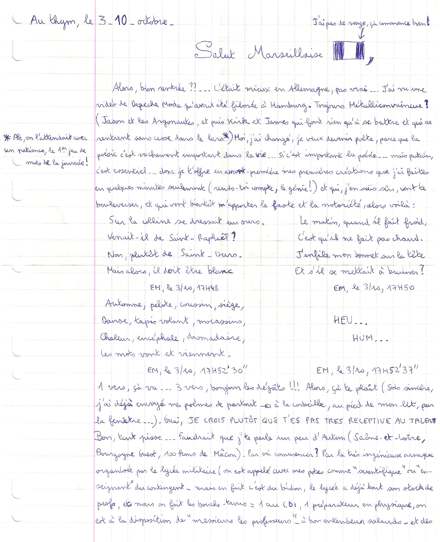 Au thym, le 3_10_octobre_
J'ai pas de rouge, ça commence bien!
Salut Marseillaise
Alors, bien rentrée ??... C'était mieux en Allemagne, pas vrai... J'ai vu une
vidéo de Depeche Mode qu'avait été filmée à Hamburg. Toujours Métalliconvaincue?
(Jason et les Argonautes, et puis Kirk et James qui font rien qu'à se battre et qui se
rentrent sans cesse dans le lars*) Moi, j'ai changé, je veux devenir poète, parce que la
poésie c'est vachement important dans la vie... Si c'est important la poésie... mais putain,
c'est essentiel... donc je t'offre en première mes premières créations que j'ai faites
en quelques minutes seulement (rends-toi compte, le génie!) et qui, j'en suis sûr, vont te
bouleverser, et qui vont bientôt m'apporter la gloire et la notoriété, alors voilà :
* Ah, on l'attendait avec
impatience, le 1er jeu de
mots de la journée!
Sur la colline se dressait un ours.
Venait-il de Saint-Raphaël?
Non, plutôt de Saint-Ours.
Mais alors, il doit être blanc
EM, le 3/10, 17H48
Le matin, quand il fait froid,
C'est qu'il ne fait pas chaud.
J'enfile mon bonnet sur la tête
Et s'il se mettait à bruiner?
EM, le 3/10, 17H50
Automne, pelote, coussin, siège,
Danse, tapis volant, mocassins,
Chaleur, encéphale, dromadaire,
Les mots vont et viennent.
EM, le 3/10, 17H52'30"
HEU...
HUM...
EM, le 3/10, 17H52'37"
1 vers, ça va... 3 vers, bonjour les dégâts!!! Alors, ça te plaît (Sois sincère,
j'ai déjà envoyé mes poèmes de partout à la corbeille, au pied de mon lit, par
la fenêtre...). Ouai, JE CROIS PLUTÔT QUE T'ES PAS TRES RECEPTIVE AU TALENT
Bon, tant pisse... Faudrait que j'te parle un peu d'Autun (Saône-et-Loire,
Bourgogne ouest, 100 bornes de Mâcon). Par où commencer? Par la vie ingénieuse
organisée par le lycée militaire (on est appelé avec mes potes comme "scientifique" ou "en-
seignant" du contingent - mais en fait c'est du bidon, le lycée a déjà tout son stock de
profs, et nous on fait les bouche-trous = 1 au CDI, 1 préparateur en physique, on
est à la disposition de "messieurs les professeurs" - à bon entendeur salauds - et dès